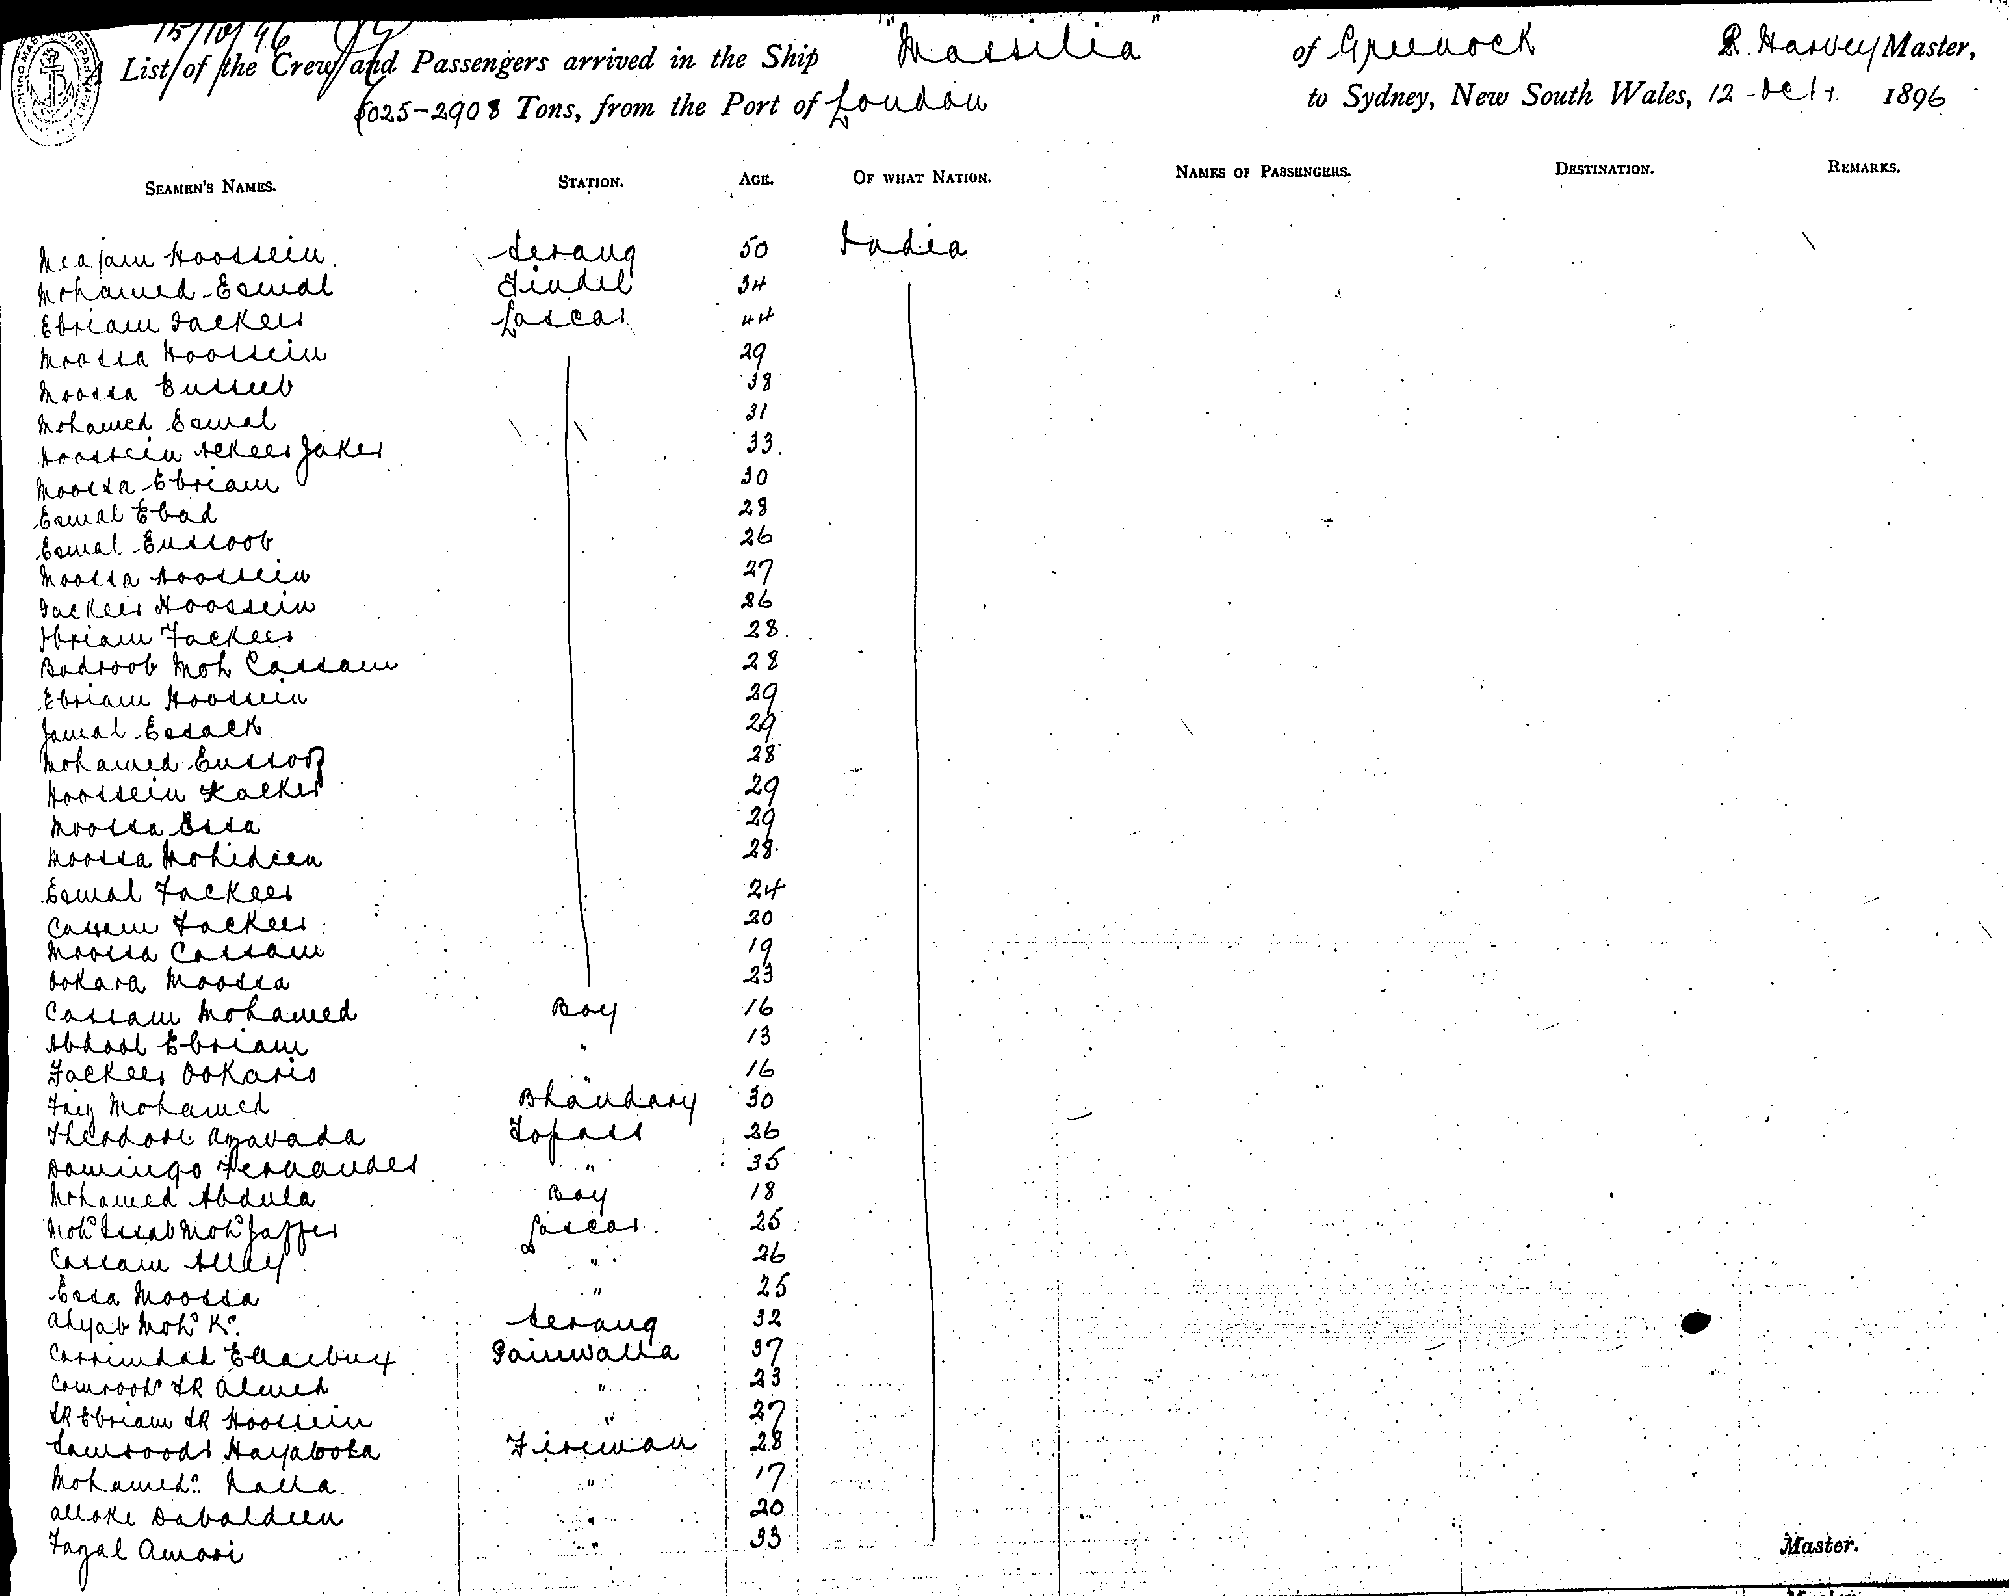 15/10/96
A List of the Crew and Passengers arrived in the Ship "Massilia" of Greenock R. Harvey Master,
6025-2908 Tons, from the Port of London to Sydney, New South Wales, 12 Oct. 1896
SEAMEN'S NAMES. STATION. AGE. OF WHAT NATION. NAMES OF PASSENGERS. DESTINATION. REMARKS.
Meajam Hoossein Serang 50 India
Mohamed Esmal Tindel 34
Ebriam Fackeer Lascar 44
Moossa Hoossein 29
Moossa Eusseub 38
Mohamed Esmal 31
Hoossein Ackeer Jaker 33
Moossa Ebriam 30
Esmal Ebad 28
Esmal Eussoob 26
Moossa Hoossein 27
Fackeer Hoossein 26
Ibriam Fackeer 28
Badroob Moh Cassam 28
Ebriam Hoossein 29
Jamal Essack 29
Mohamed Eussoof 28
Hoossein Facker 29
Moossa Essa 29
Moossa Mohideen 28
Esmal Fackeer 24
Cassam Fackeer 20
Moossa Cassam 19
Ookara Moossa 23
Cassam Mohamed Boy 16
Abdool Ebriam " 13
Fackeer Ookario " 16
Faig Mohamed Bhandary 30
Theodore Azavada Topass 26
Domingo Fernandes " 35
Mohamed Abdula Boy 18
Mohd Issab Mohd Jaffer Lascar 25
Cassam Alley " 26
Essa Moossa " 25
Ahyab Mohd Kn. Serang 32
Carrimdad Ellaebux Painwalla 37
SK Almed " 23
SK Ebriam SK Hoossein " 27
Hayaboka Fireman 28
Mohamed Nalla " 17
Alloke Daboldeen " 20
Fazal Amari " 33
Master.